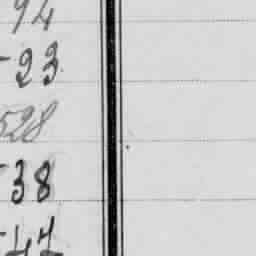 94
23
528
38
44